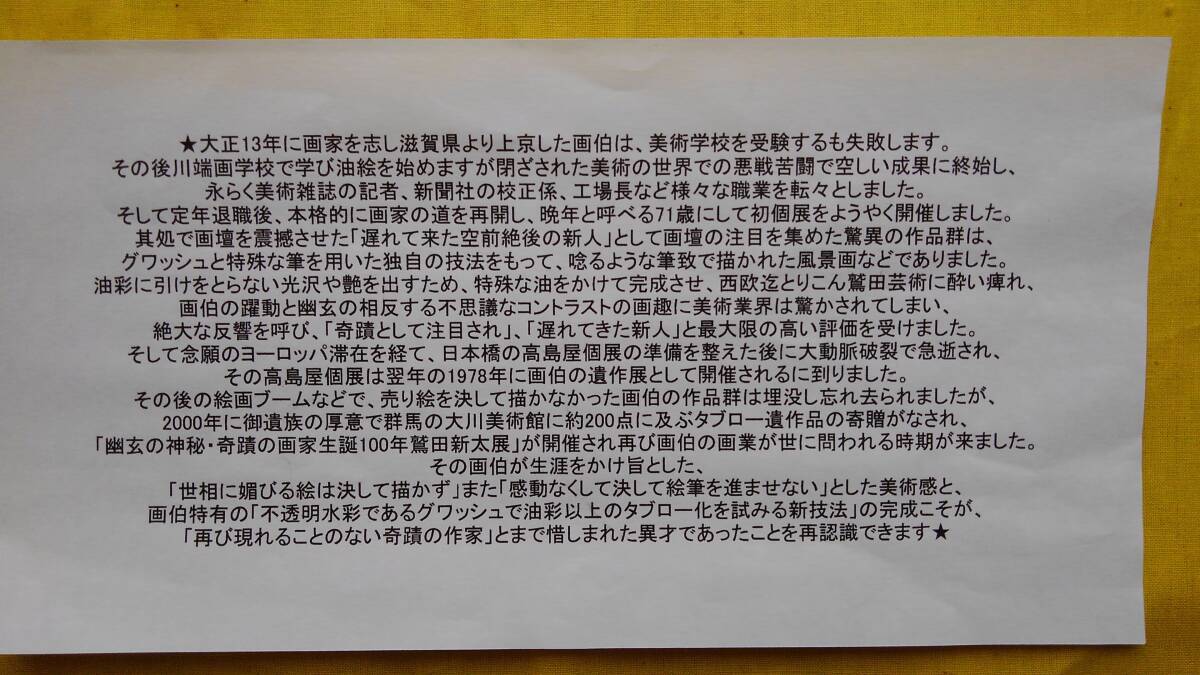 ★大正13年に画家を志し滋賀県より上京した画伯は、美術学校を受験するも失敗します。
その後川端画学校で学び油絵を始めますが閉ざされた美術の世界での悪戦苦闘で空しい成果に終始し、
永らく美術雑誌の記者、新聞社の校正係、工場長など様々な職業を転々としました。
そして定年退職後、本格的に画家の道を再開し、晩年と呼べる71歳にして初個展をようやく開催しました。
其処で画壇を震撼させた「遅れて来た空前絶後の新人」として画壇の注目を集めた驚異の作品群は、
グワッシュと特殊な筆を用いた独自の技法をもって、唸るような筆致で描かれた風景画などでありました。
油彩に引けをとらない光沢や艶を出すため、特殊な油をかけて完成させ、西欧迄とりこん鷲田芸術に酔い痺れ、
画伯の躍動と幽玄の相反する不思議なコントラストの画趣に美術業界は驚かされてしまい、
絶大な反響を呼び、「奇蹟として注目され」、「遅れてきた新人」と最大限の高い評価を受けました。
そして念願のヨーロッパ滞在を経て、日本橋の高島屋個展の準備を整えた後に大動脈破裂で急逝され、
その高島屋個展は翌年の1978年に画伯の遺作展として開催されるに到りました。
その後の絵画ブームなどで、売り絵を決して描かなかった画伯の作品群は埋没し忘れ去られましたが、
2000年に御遺族の厚意で群馬の大川美術館に約200点に及ぶタブロー遺作品の寄贈がなされ、
「幽玄の神秘・奇蹟の画家生誕100年鷲田新太展」が開催され再び画伯の画業が世に問われる時期が来ました。
その画伯が生涯をかけ旨とした、
「世相に媚びる絵は決して描かず」また「感動なくして決して絵筆を進ませない」とした美術感と、
画伯特有の「不透明水彩であるグワッシュで油彩以上のタブロー化を試みる新技法」の完成こそが、
「再び現れることのない奇蹟の作家」とまで惜しまれた異才であったことを再認識できます★